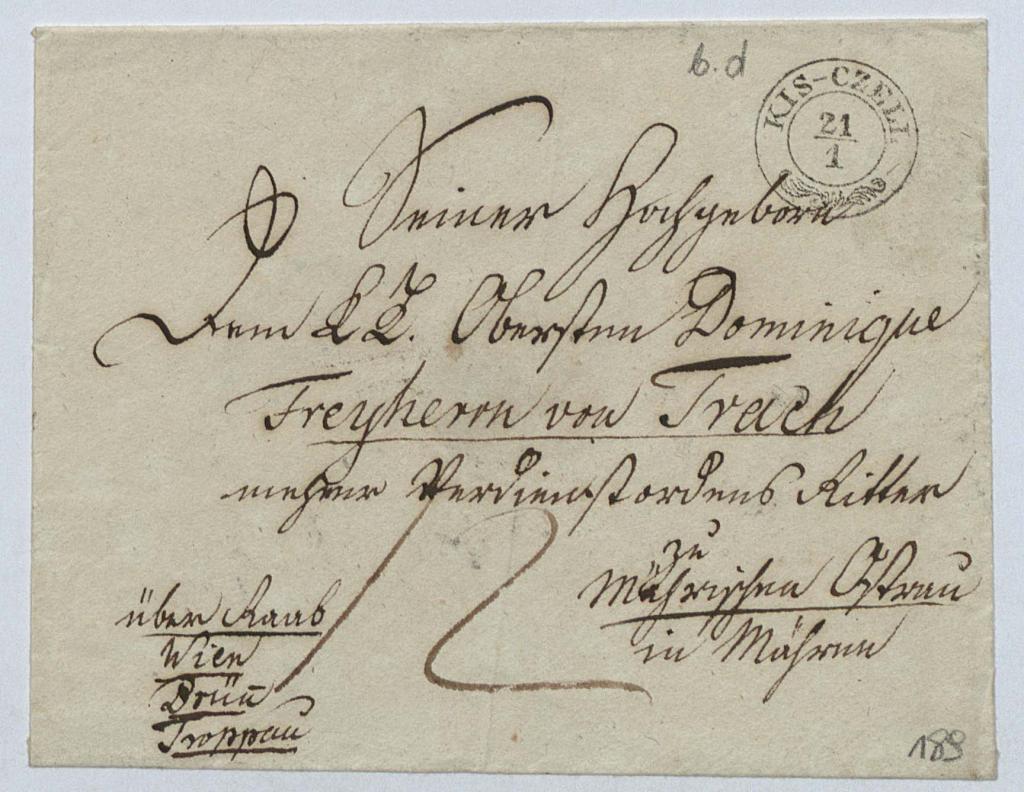 b.d
KIS-CZELL
21
1
Seiner Hochgeborn
Dem KK. Obersten Dominique
Freyherrn von Trach
mehrer Verdienstordens Ritter
zu
Mährischen Ostrau
in Mähren
über Raab
Wien
Brün̄
Troppau
12
189